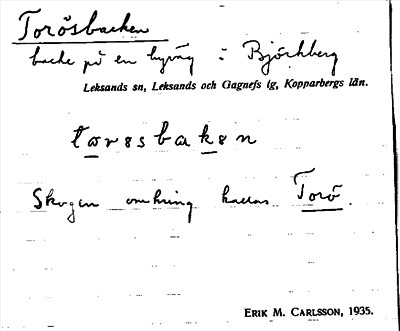 Torösbacken
backe på en byväg i Björkberg
Leksands sn, Leksands och Gagnefs tg, Kopparbergs län.
tơrǝsbakǝn
Skogen omkring kallas Torö.
ERIK M. CARLSSON, 1935.